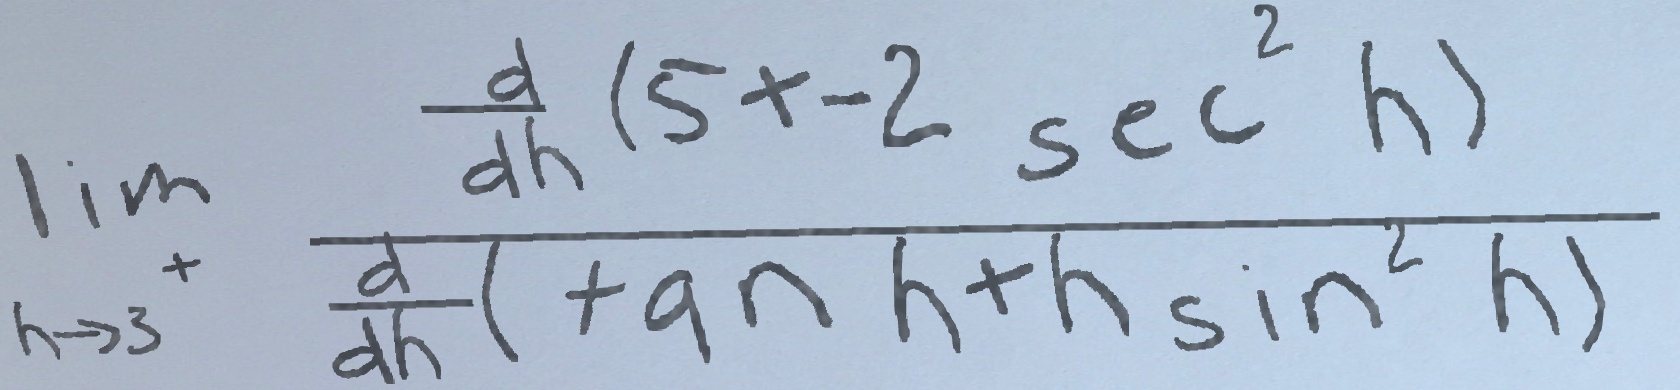 \lim_{h \to 3^+} \frac{\frac{d}{dh}(5+-2\sec^2 h)}{\frac{d}{dh}(\tan h+h\sin^2 h)}